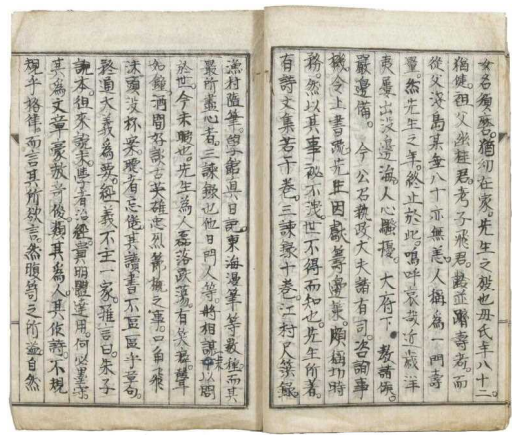 女名須磨猶幼在家。先生之歿也母氏年八十二。
猶健。祖父坐君。考子飛君。並躋壽考。而
從父淡島某年八十亦無恙。人稱為一門壽
星然先生之年。終止於此。嗚呼哀哉近歲洋
夷屢出没邊海。人心騷擾。大府下教諸侯。
嚴邊備。今公名執政大夫諸有司。咨詢事
機令上書先生因獻籌邊策。頗稱切時
務。然以其事祕不洩世不得而知也先生所著。
有詩文集若干卷。三諫十卷江村尺録。
漁村隨筆。學館日記。東海漫筆等数種。而其
最所盡心者。三諫也他日門人等。將相謀以問
於世。今未暇也。先生為人磊落跌蕩有笑。聲
如鐘。酒間好談古英雄忠烈節概之事。口角飛
沫。頭没杯案。有忘倦其讀書不区区乎章句。
務通大義為要。經義不主一家。言曰朱子
說本。徂來說末。學者治經。明運用。何必墨守。
其為文章。豪放奇俊。類其為人。其詩。不規
規乎格律。而言其所欲言。然腹笥之所溢自然